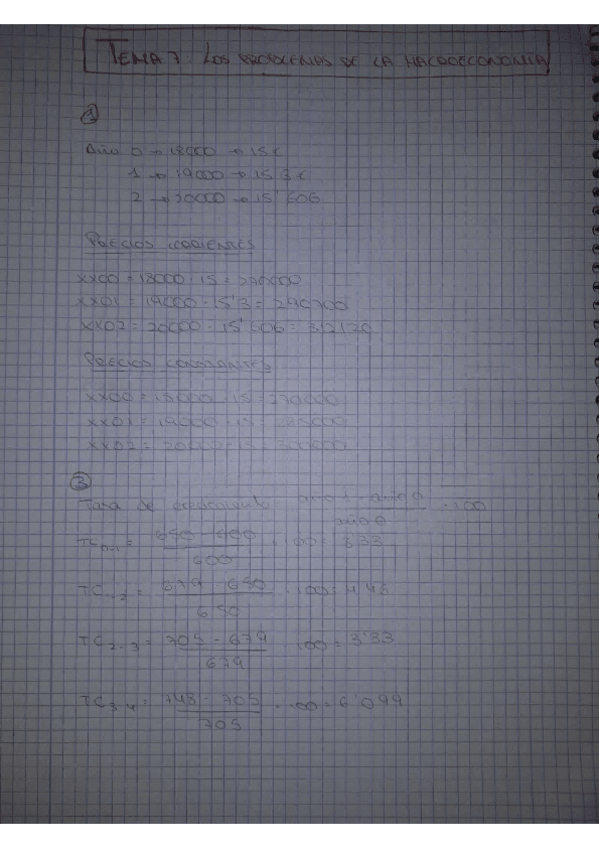 TEMA 7: LOS PROBLEMAS DE LA MACROECONOMIA
1
Año 0 → 18000 → 15 €
1 → 19000 → 15'3 €
2 → 20000 → 15'606
PRECIOS CORRIENTES
XX00 = 18000 · 15 = 270000
XX01 = 19000 · 15'3 = 290700
XX02 = 20000 · 15'606 = 312120
PRECIOS CONSTANTES
XX00 = 18000 · 15 = 270000
XX01 = 19000 · 15 = 285000
XX02 = 20000 · 15 = 300000
3
Tasa de crecimiento: año 1 - año 0 / año 0 · 100
TC = / 600 · 100 =
TC = 679 - 650 / 650 · 100 = 4'46
TC 2-3 = 705 - 679 / 679 · 100 = 3'33
TC 3-4 = 748 - 705 / 705 · 100 = 6'099